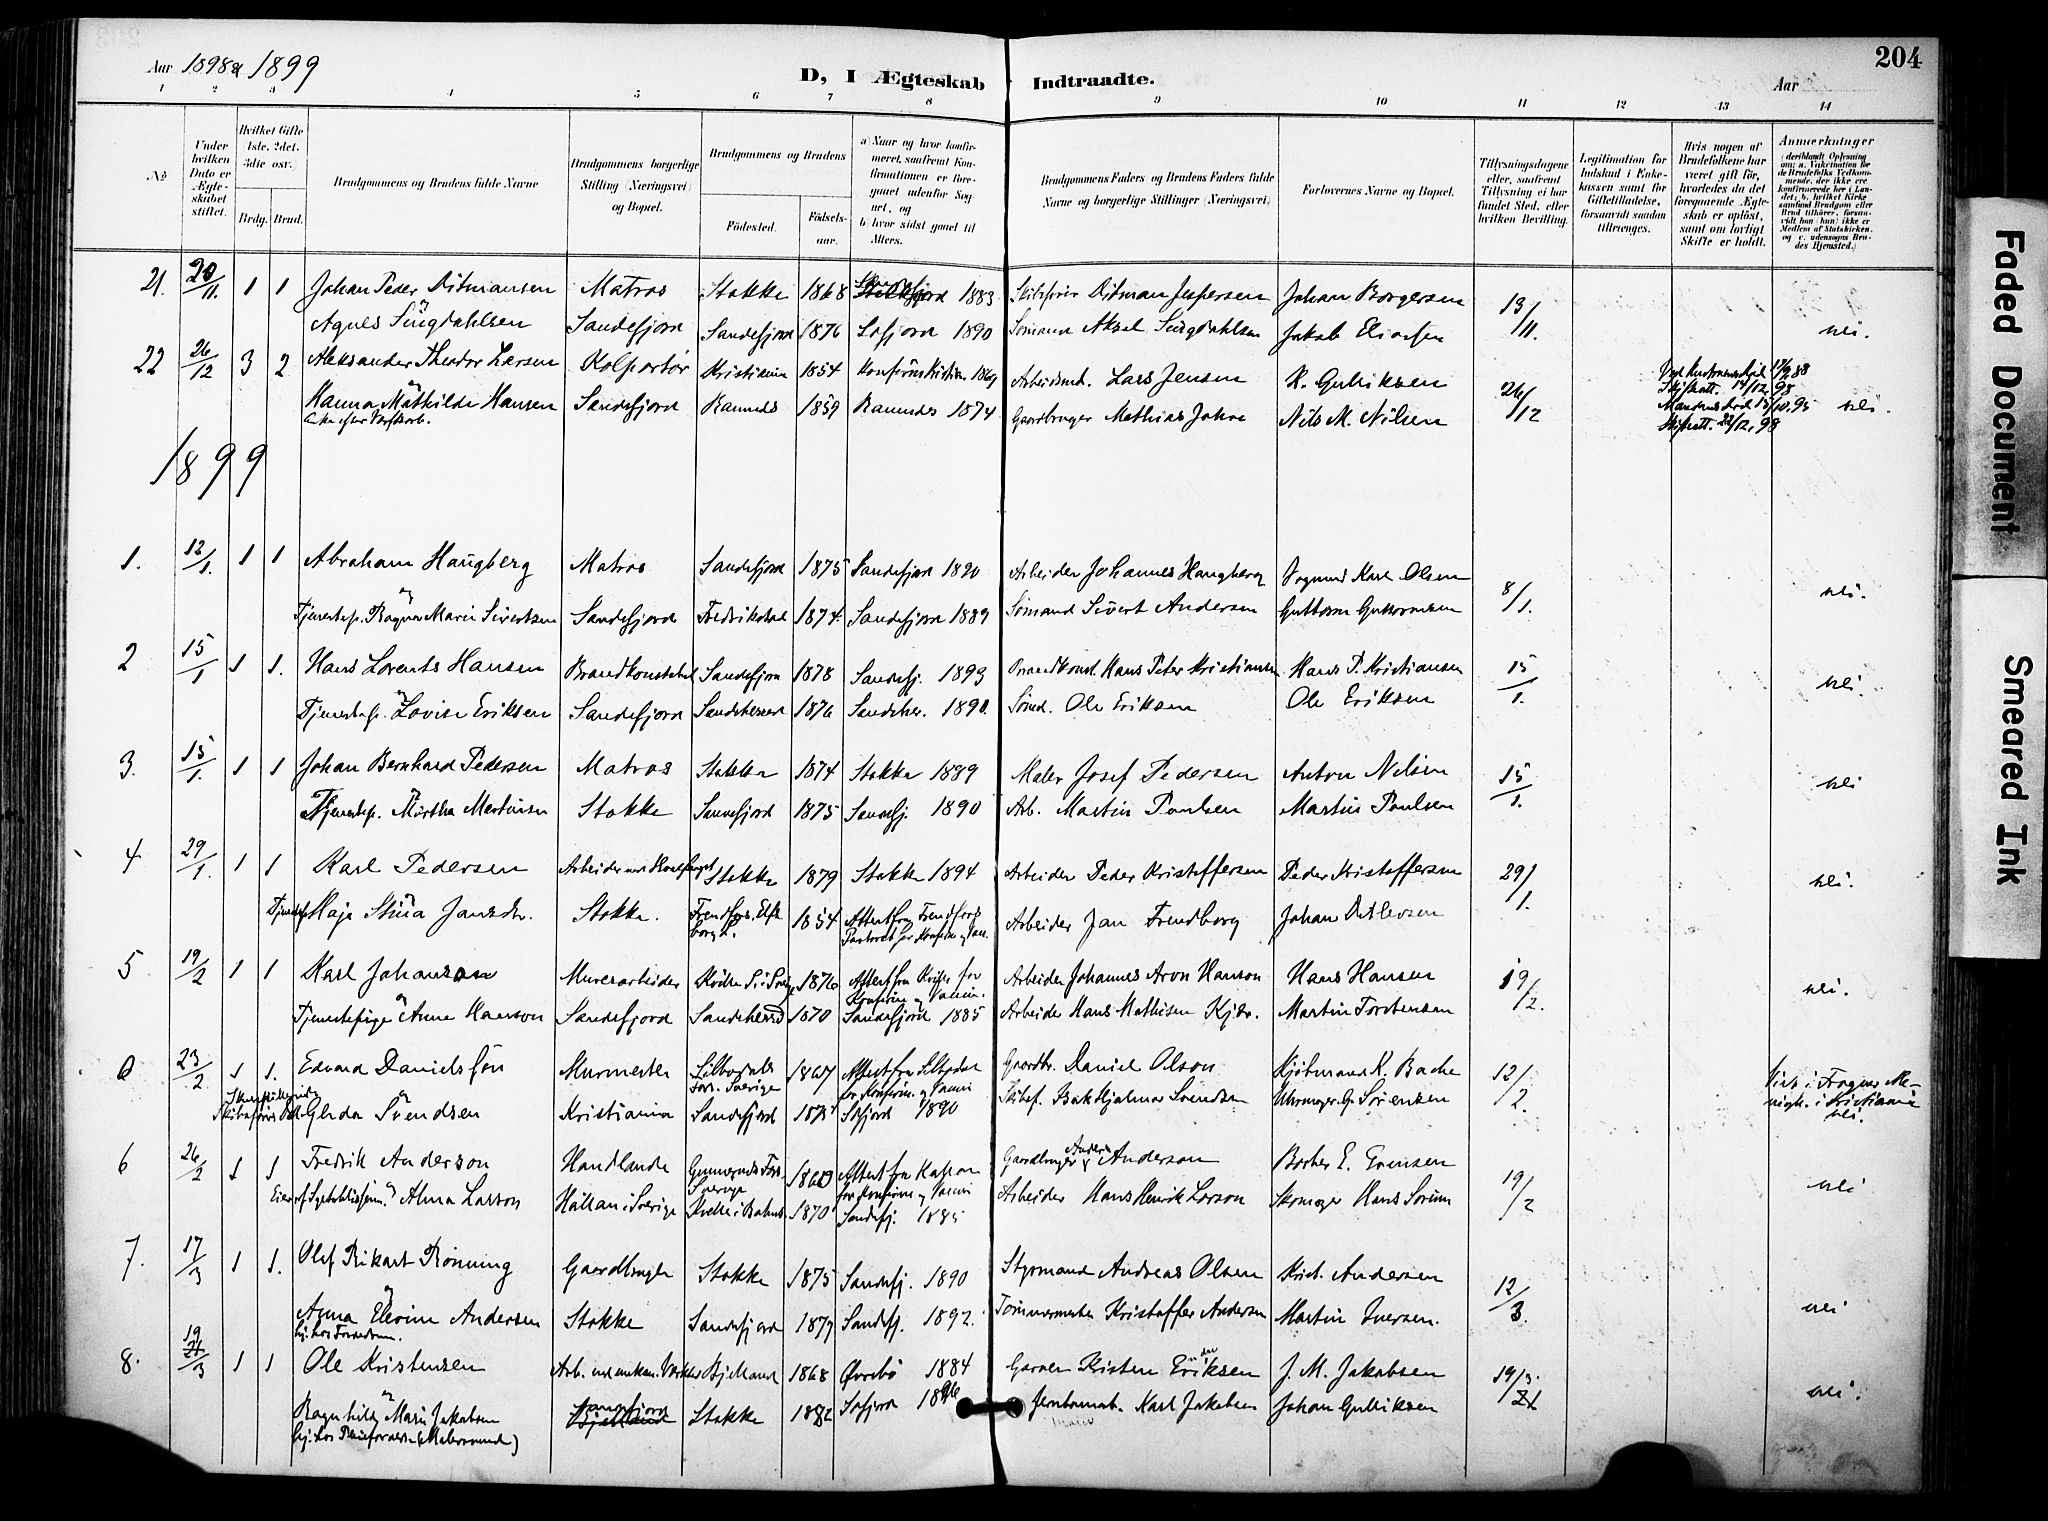 204
Aar 1898 & 1899
D, I Ægteskab Indtraadte.
Aar
1 2 3 4 5 6 7 8 9 10 11 12 13 14
No
Under hvilken Dato er Ægteskabet stiftet.
Hvilket Gifte 1ste. 2det. 3die osv.)
Brdg. Brud.
Brudgommens og Brudens fulde Navne
Brudgommens borgerlige Stilling (Næringsvei) og Bopæl.
Brudgommens og Brudens
Födested.
Födsels-aar.
a) Naar og hvor konfirmeret, saafremt Konfirmationen er foregaaet udenfor Sognet, og
b) hvor sidst gaaet til Alters.
Brudgommens Faders og Brudens Faders fulde Navne og borgerlige Stillinger (Næringsvei)
Forlovernes Navne og Bopæl.
Tillysningsdagene eller, saafremt Tillysning ei har fundet Sted, efter hvilken Bevilling.
Legitimation for Indskud i Enkekassen samt for Giftetilladelse, forsaavidt saadan tiltrænges.
Hvis nogen af Brudefolkene har været gift før, hvorledes da det foregaaende Ægteskab er opløst, samt om lovligt Skifte er holdt.
Anmærkninger
(deriblandt Oplysning om: a. Vakcination for de Brudefolks Vedkommende, der ikke ere konfirmerede her i Landet; b. hvilket Kirkesamfund Brudgom eller Brud tilhører, forsaavidt han (hun) ikke er Medlem af Statskirken, og c. udensogns Brudes Hjemsted.)
21. 20/11. 1 1 Johan Peder Ditmansen Matros Stokke 1868 1883 Skibsfører Ditman Jespersen Johan Borgersen 13/11.
Agnes Lüngdahlsen Sandefjord Sandefjord 1876 Sefjord 1890 Sömand Aksel Lüngdahlsen Jakob Eliassen nei.
22 26/12 3 2 Aleksander Theodor Larsen Kolportör Kristiania 1854 Arbeidsmd. Lars Jensen K. Gulliksen 26/12
Hanna Mathilde Hansen Sandefjord Ramnes 1859 Ramnes 1874 Gaardbruger Mathias Jahre Nils M. Nilsen nei.
Skifteatt. 14/12, 98
Skifteatt. 22/12, 98
1899
1. 12/1. 1 1 Abraham Haugberg Matros Sandefjord 1875 Sandefjord 1890 Arbeider Johannes Haugberg Karl Olsen 8/1.
Tjenestep. Ragna Marie Sivertsen Sandefjord Fredrikstad 1874. Sandefjord 1889 Sømand Sivert Andersen Guttorm Guttormsen nei.
2 15/1 1 1. Hans Lorents Hansen Brandkonstabel Sandefjord 1878 Sandefj. 1893 Brandkonst. Hans Peter Kristiansen Hans P. Kristiansen 15/1.
Tjenestep. Lovise Eriksen Sandefjord Sandeherred 1876 Sandeher. 1890. Sömd. Ole Eriksen Ole Eriksen nei.
3. 15/1. 1 1 Johan Bernhard Pedersen Matros Stokke 1874 Stokke 1889 Maler Josef Pedersen Anton Nilsen 15/1.
Tjenestep. Martha Martinsen Stokke Sandefjord 1875 Sandefj. 1890 Arb. Martin Paulsen Martin Paulsen nei
4 29/1. 1 1 Karl Pedersen Stokke 1879 Stokke 1894 Arbeider Peder Kristoffersen Peder Kristoffersen 29/1.
Maja Stina Jansdr. Stokke. 1854 Attest fra Arbeider Jan Frendberg Johan Detlevsen nei.
5 19/2 1 1 Karl Johanson Murerarbeider 1876 Attest fra for Konfirm. og Vaccin. Arbeider Johannes Aron Hanson Hans Hansen 19/2.
Tjenestepige Anne Hanson Sandefjord Sandeherred 1870 Sandefjord 1885 Arbeider Hans Mathisen Martin Torstensen nei.
23/2 1 1. Edvard Danielsson Murmester Sverige 1867 Attest fra for Konfirm. og Vaccin Gaardbr. Daniel Olson Kjöbmand K. Bache 12/2.
Gerda Svendsen Kristiania Sandefjord Sefjord 1890 Skibsf. Isak Hjalmar Svendsen Uhrmager G. Sørensen
Viet i Fagernes Me-
nigh. i Kristiania
nei.
6 26/2 1 1 Fredrik Anderson Handlande Sverige Attest fra for Konfirm. og Vaccin Gaardbruger Anders Anderson Barber E. Evensen 19/2
Alma Larson i Sverige 1870 Sandefj. 1885 Arbeider Hans Henrik Larson Skomager Hans Sorum nei
7. 17/3 1 1. Olef Rikart Rönning Gaardbruger Stokke 1875 Sandefj. 1890 Styrmand Andreas Olsen Krist. Andersen 12/3.
Anna Elevine Andersen Stokke Sandefjord 1877 Sandefj. 1892. Tömmermester Kristoffer Andersen Martin Iversen. nei
8. 19/3 1 1 Ole Kristensen Arb. ved mekan. Værksted Bjelland 1868 Øvrebö 1884 Garver Kristen Eriksen J. M. Jakobsen 19/3.
Ragnhild Marie Jakobsen Sandefjord Stokke 1882 Sefjord 1896 Karl Jakobsen Johan Gulliksen nei.
Faded Document
Smeared Ink